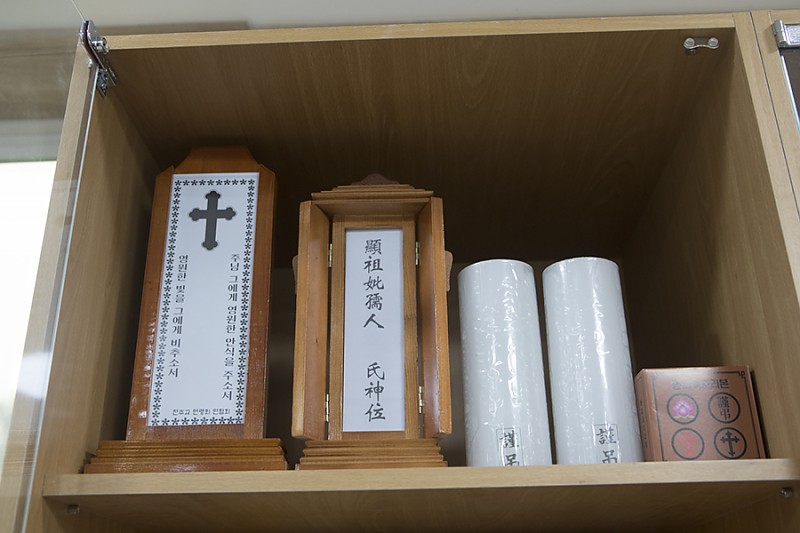 주님 그에게 영원한 안식을 주소서
영원한 빛을 그에게 비추소서
천주교 연령회 연합회
顯祖妣孺人 氏神位
謹弔
謹弔
謹弔